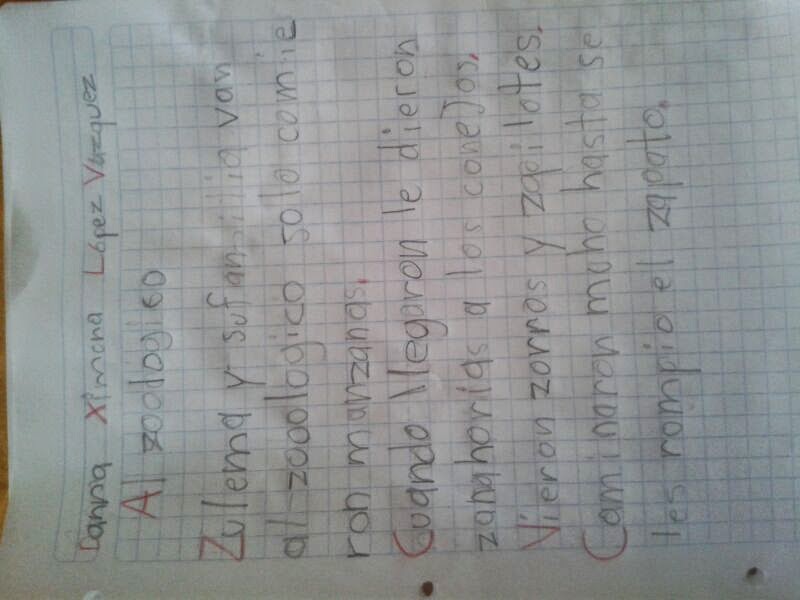 Danna Ximena López Vazquez
Al zoologico
Zulema y su familia van
al zooologico solo comie
ron manzanas.
Cuando llegaron le dieron
zanahorias a los conejos.
Vieron zorros y zopilotes.
Caminaron moho hasta se
les rompio el zapato.